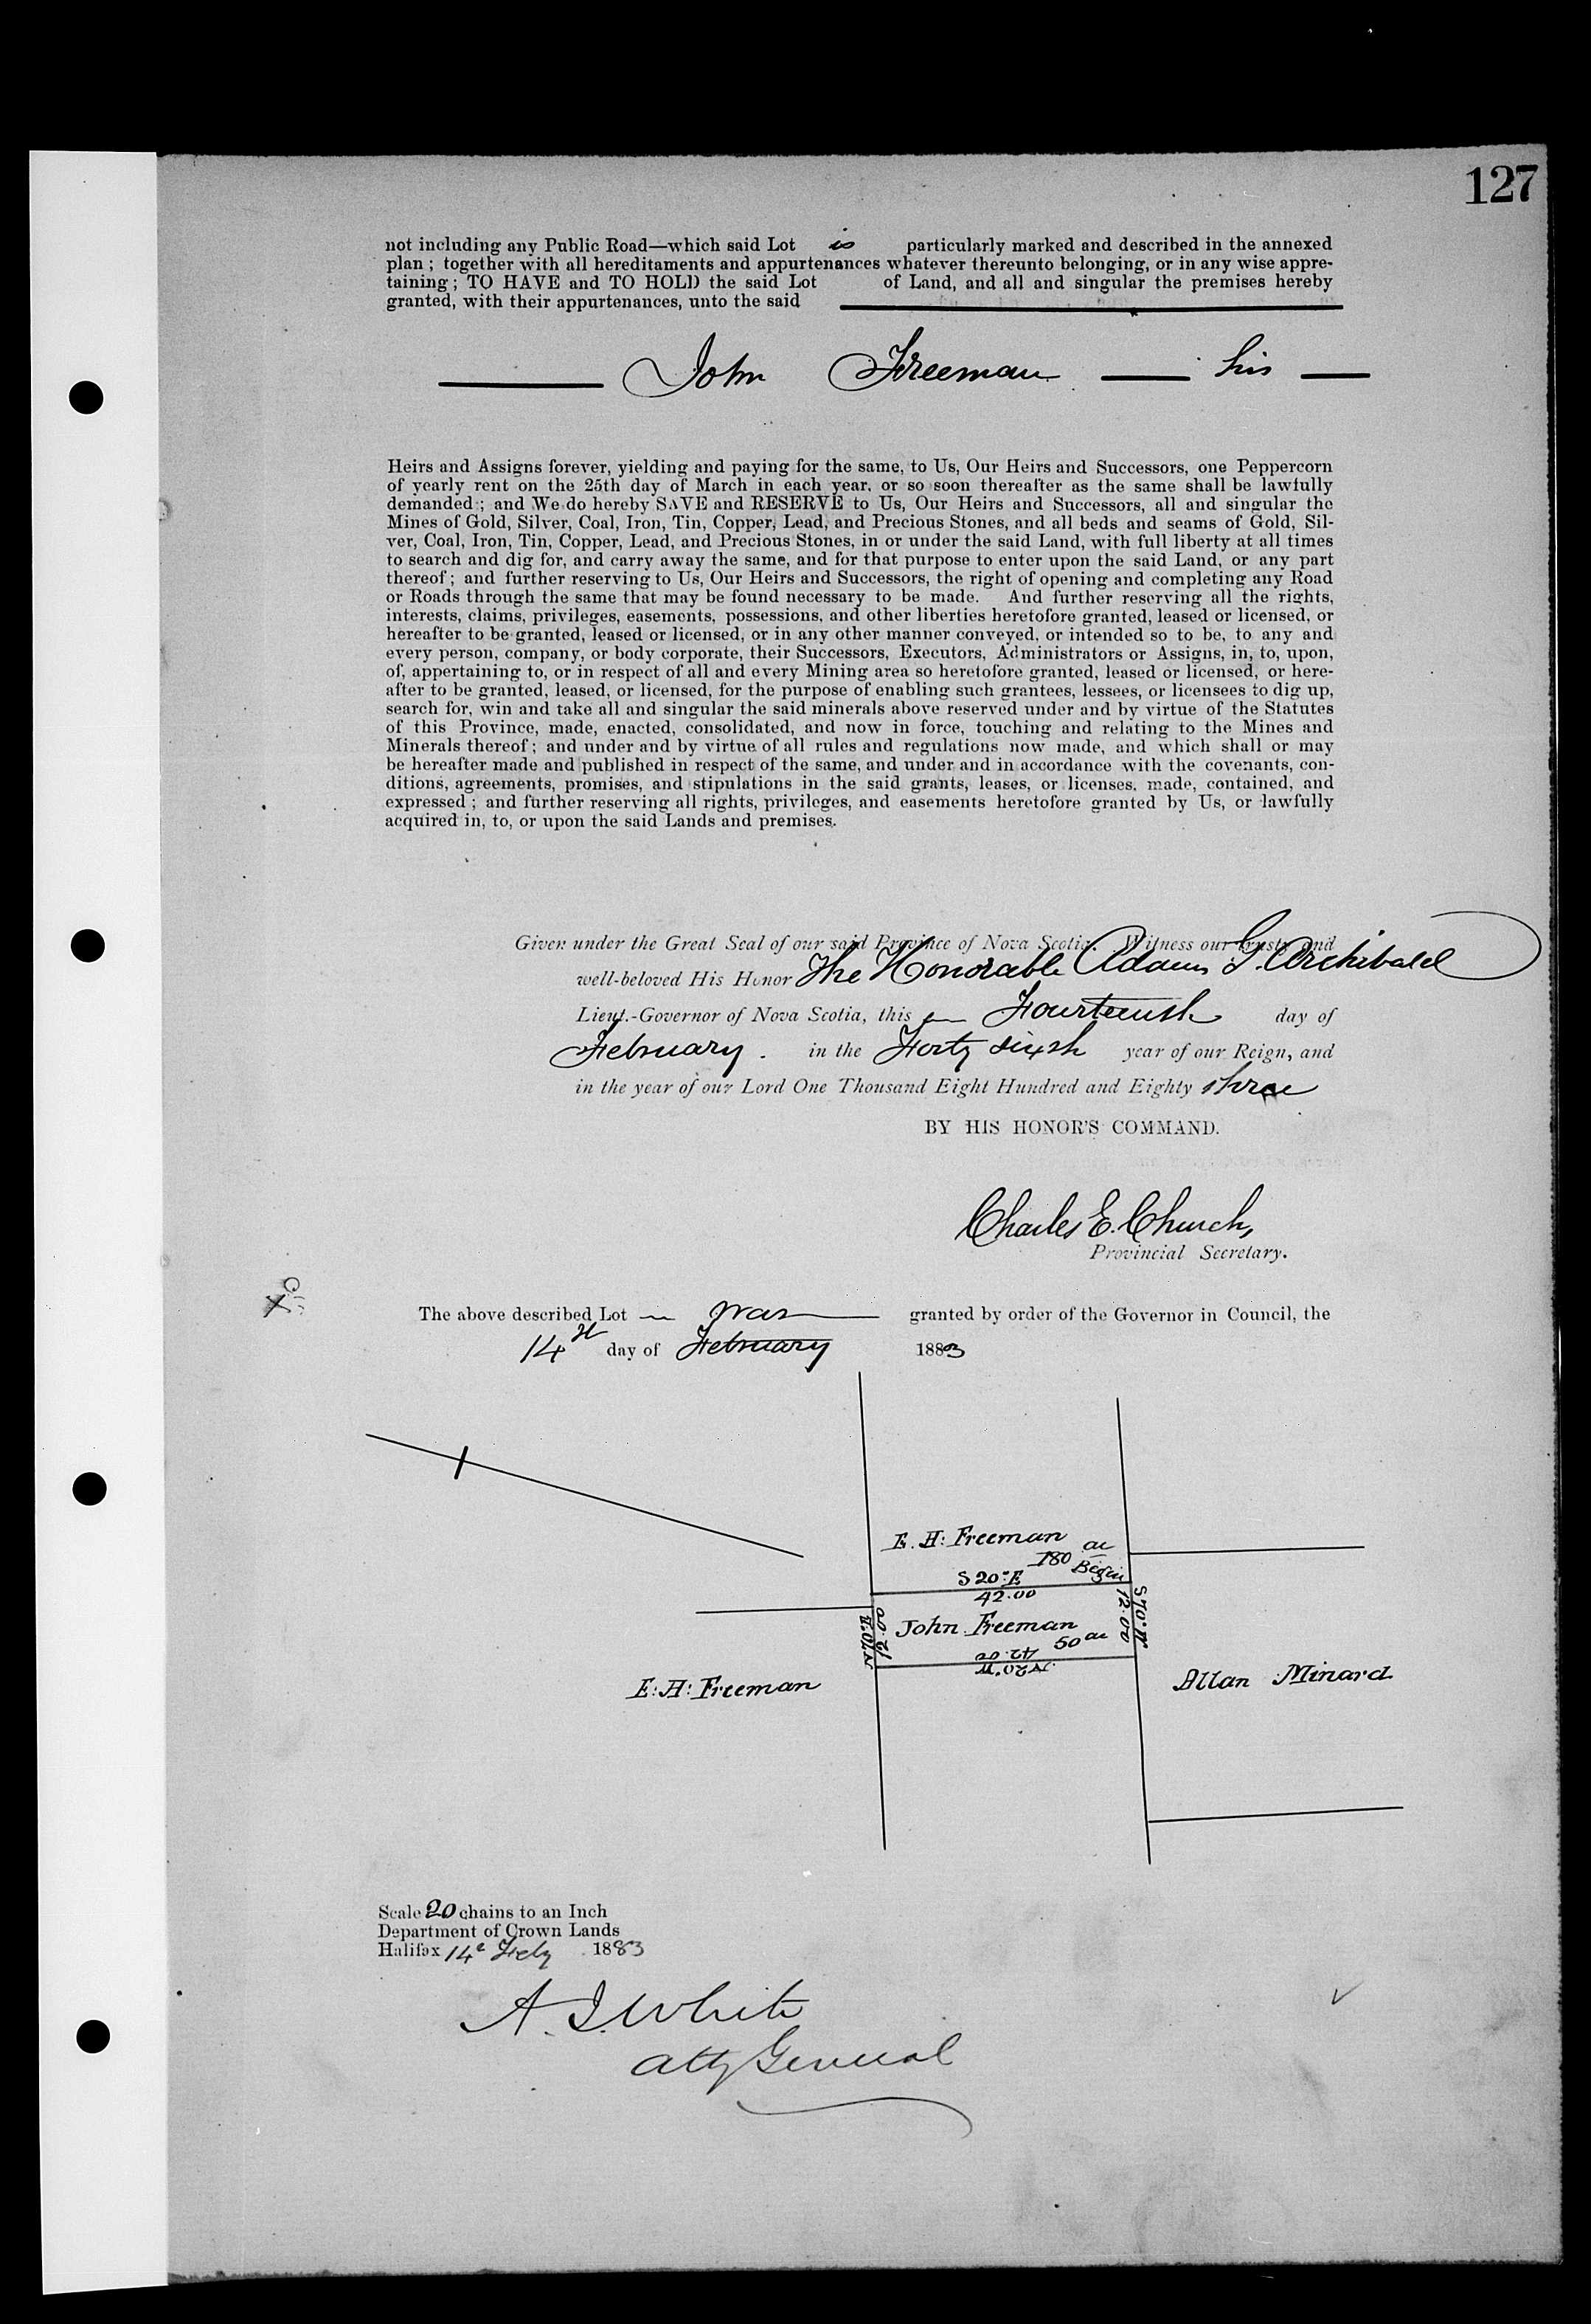 127
not including any Public Road—which said Lot is particularly marked and described in the annexed
plan ; together with all hereditaments and appurtenances whatever thereunto belonging, or in any wise appre-
taining ; TO HAVE and TO HOLD the said Lot of Land, and all and singular the premises hereby
granted, with their appurtenances, unto the said
John Freeman his
Heirs and Assigns forever, yielding and paying for the same, to Us, Our Heirs and Successors, one Peppercorn
of yearly rent on the 25th day of March in each year, or so soon thereafter as the same shall be lawfully
demanded ; and We do hereby SAVE and RESERVE to Us, Our Heirs and Successors, all and singular the
Mines of Gold, Silver, Coal, Iron, Tin, Copper, Lead, and Precious Stones, and all beds and seams of Gold, Sil-
ver, Coal, Iron, Tin, Copper, Lead, and Precious Stones, in or under the said Land, with full liberty at all times
to search and dig for, and carry away the same, and for that purpose to enter upon the said Land, or any part
thereof ; and further reserving to Us, Our Heirs and Successors, the right of opening and completing any Road
or Roads through the same that may be found necessary to be made. And further reserving all the rights,
interests, claims, privileges, easements, possessions, and other liberties heretofore granted, leased or licensed, or
hereafter to be granted, leased or licensed, or in any other manner conveyed, or intended so to be, to any and
every person, company, or body corporate, their Successors, Executors, Administrators or Assigns, in, to, upon,
of, appertaining to, or in respect of all and every Mining area so heretofore granted, leased or licensed, or here-
after to be granted, leased, or licensed, for the purpose of enabling such grantees, lessees, or licensees to dig up,
search for, win and take all and singular the said minerals above reserved under and by virtue of the Statutes
of this Province, made, enacted, consolidated, and now in force, touching and relating to the Mines and
Minerals thereof ; and under and by virtue of all rules and regulations now made, and which shall or may
be hereafter made and published in respect of the same, and under and in accordance with the covenants, con-
ditions, agreements, promises, and stipulations in the said grants, leases, or licenses, made, contained, and
expressed ; and further reserving all rights, privileges, and easements heretofore granted by Us, or lawfully
acquired in, to, or upon the said Lands and premises.
Given under the Great Seal of our said Province of Nova Scotia. Witness our trusty and
well-beloved His Honor The Honorable Adams G. Archibald
Lieut.-Governor of Nova Scotia, this Fourteenth day of
February. in the Forty sixth year of our Reign, and
in the year of our Lord One Thousand Eight Hundred and Eighty three
BY HIS HONOR'S COMMAND.
Charles E. Church,
Provincial Secretary.
The above described Lot was granted by order of the Governor in Council, the
14th day of February 1883
E. H: Freeman
180 ac
Begin
S 20° E
42.00
S 70° W
12.00
John Freeman
50 ac
42.00
N 20° W
N 70° E
12.00
E: H: Freeman
Allan Minard
Scale 20 chains to an Inch
Department of Crown Lands
Halifax 14e Feby 1883
A. J. White
Atty General